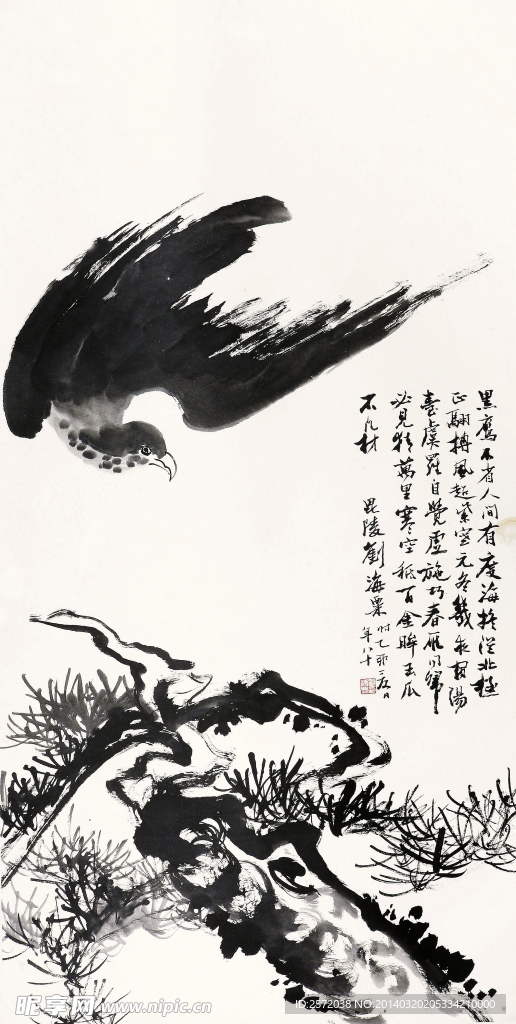 黑鷹不省人間有度海疑從北極
正翮搏風超紫塞元冬幾夜宿陽
臺虞羅自覺虛施巧春雁同歸
必見猜萬里寒空秪一日金眸玉爪
不凡材
毘陵劉海粟
時乙卯
年八十
昵享网 www.nipic.cn
ID:2572038 NO:20140320205334210000